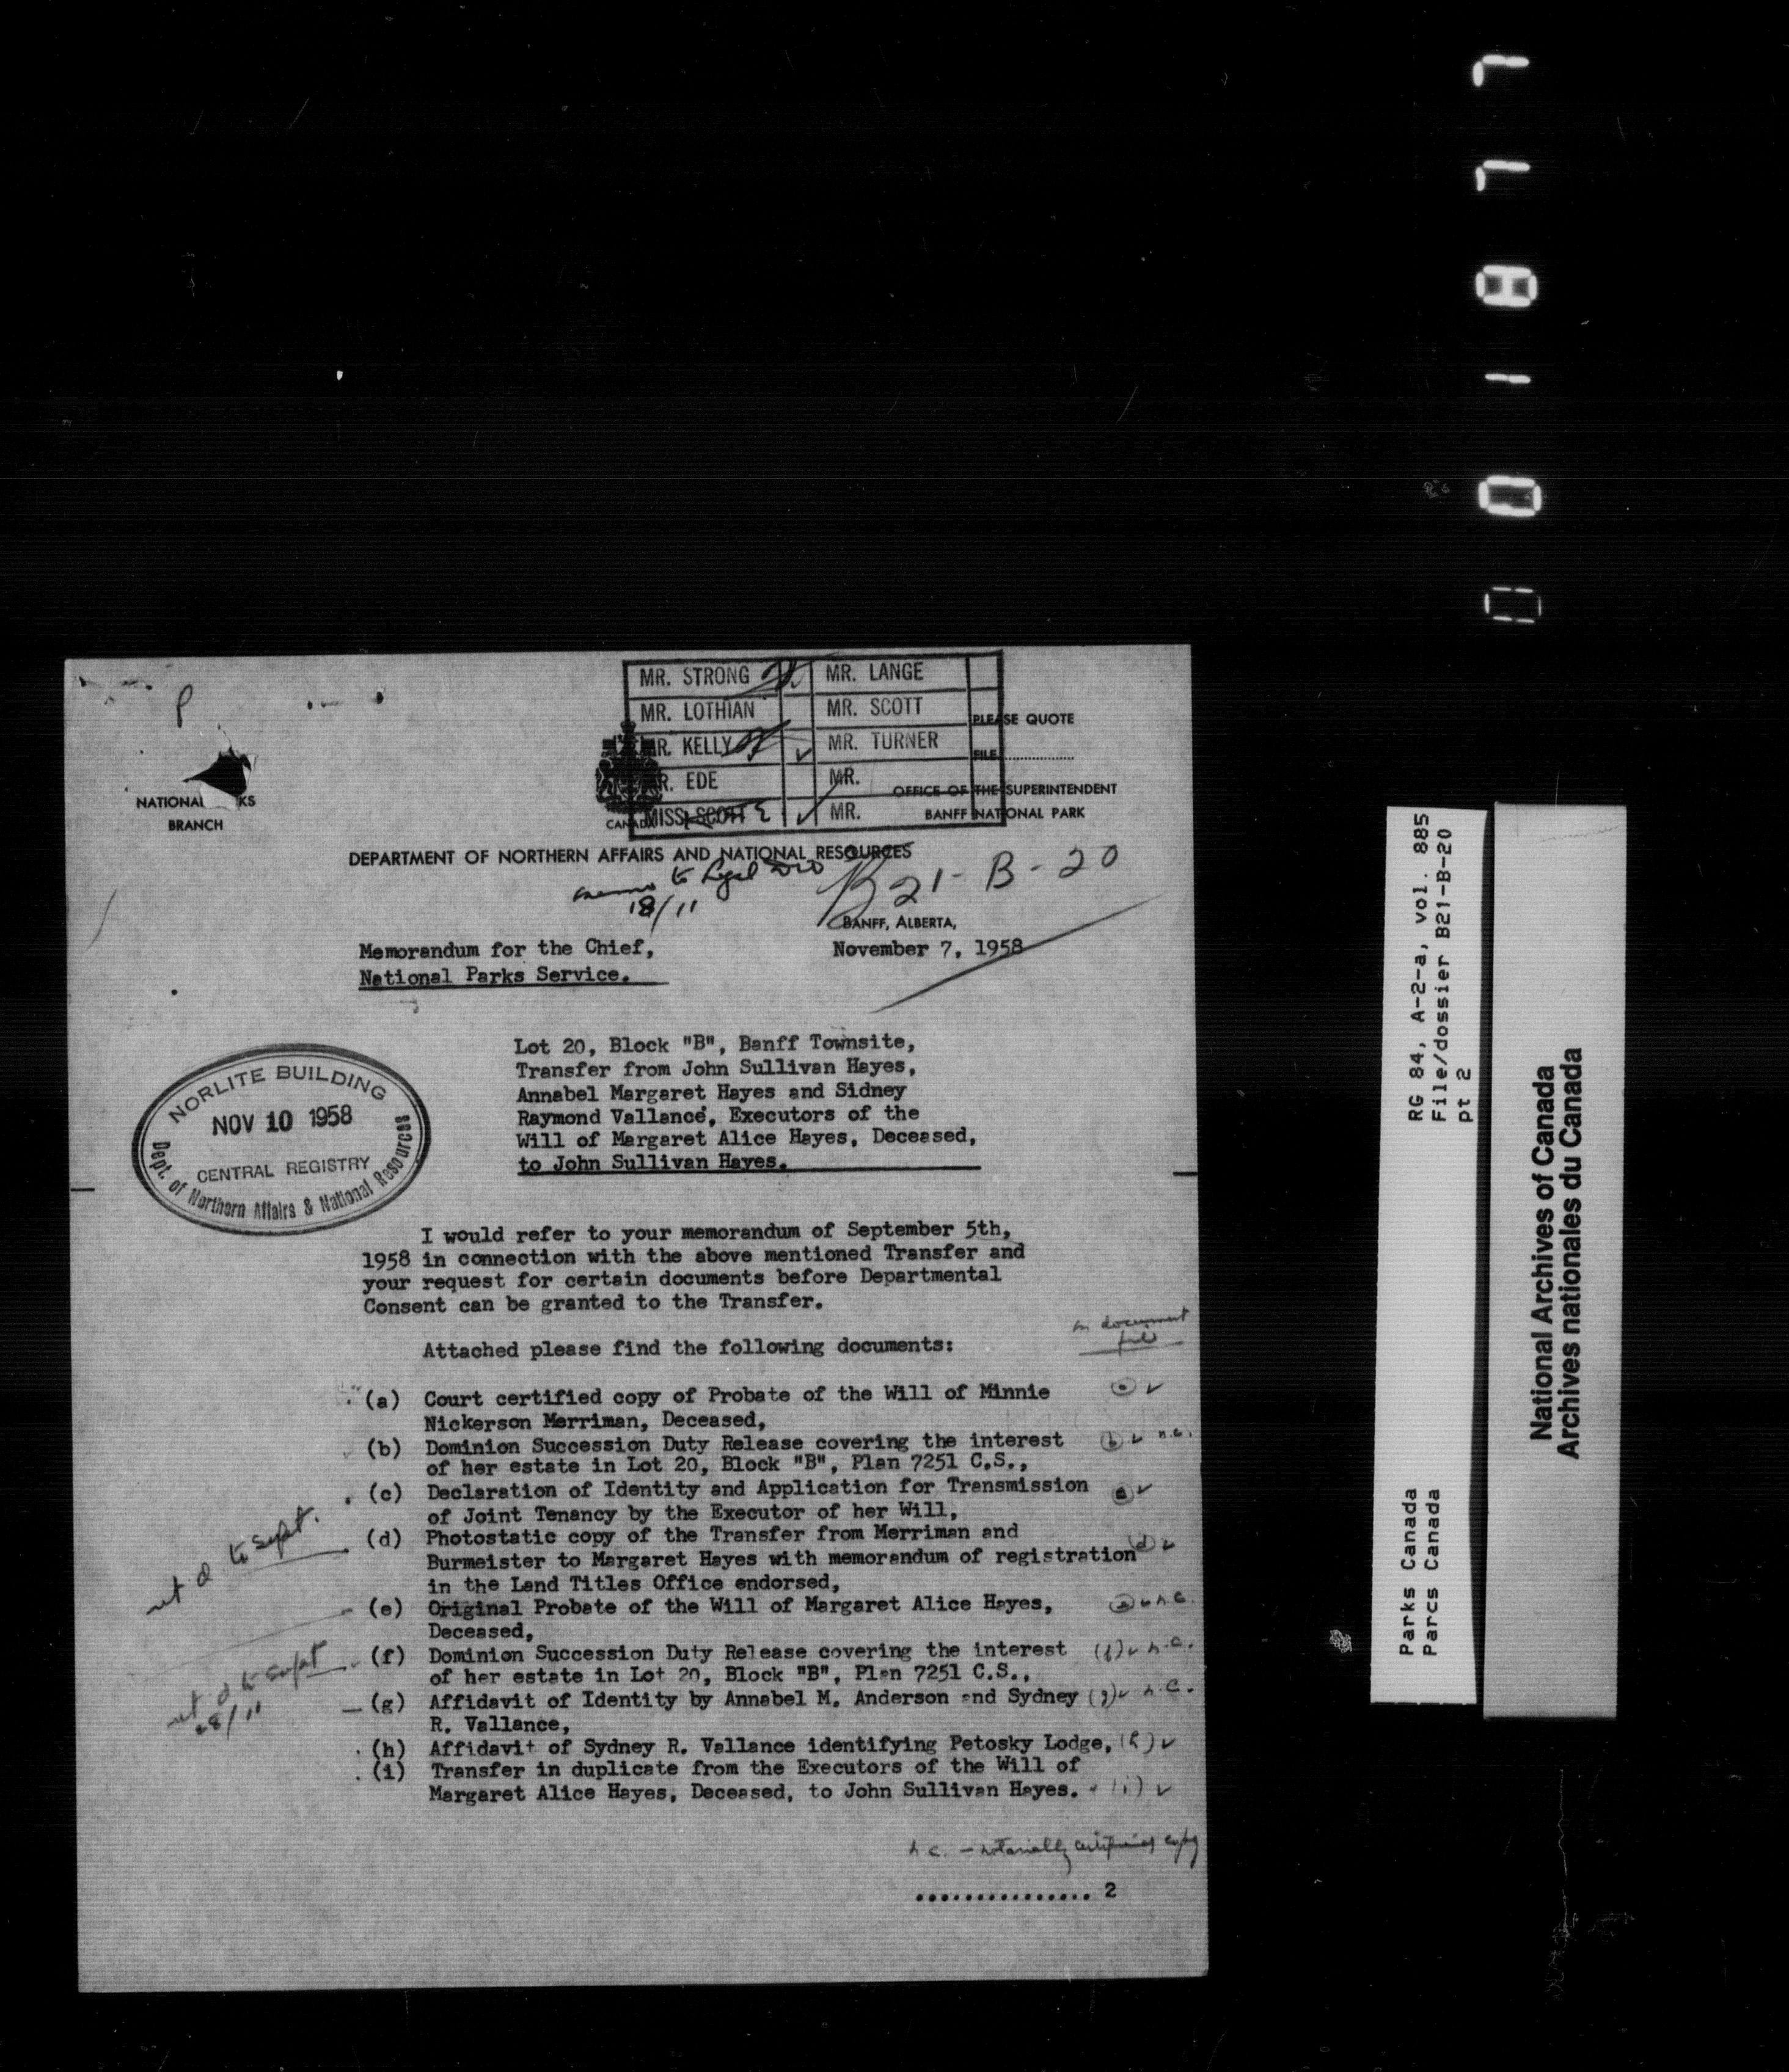 MR. STRONG MR. LANGE
MR. LOTHIAN MR. SCOTT
MR. KELLY MR. TURNER
MR. EDE MR.
MISS SCOTT MR.
PLEASE QUOTE
FILE
OFFICE OF THE SUPERINTENDENT
BANFF NATIONAL PARK
NATIONAL KS
BRANCH
CANADA
DEPARTMENT OF NORTHERN AFFAIRS AND NATIONAL RESOURCES
memo to Legal Div
18/11
B21-B-20
BANFF, ALBERTA,
Memorandum for the Chief, November 7, 1958
National Parks Service.
Lot 20, Block "B", Banff Townsite,
Transfer from John Sullivan Hayes,
Annabel Margaret Hayes and Sidney
Raymond Vallance, Executors of the
Will of Margaret Alice Hayes, Deceased,
to John Sullivan Hayes.
NORLITE BUILDING
NOV 10 1958
CENTRAL REGISTRY
Dept. of Northern Affairs & National Resources
I would refer to your memorandum of September 5th,
1958 in connection with the above mentioned Transfer and
your request for certain documents before Departmental
Consent can be granted to the Transfer.
on document
file
Attached please find the following documents:
(a) Court certified copy of Probate of the Will of Minnie
Nickerson Merriman, Deceased,
(b) Dominion Succession Duty Release covering the interest (b) ✓ n.c.
of her estate in Lot 20, Block "B", Plan 7251 C.S.,
(c) Declaration of Identity and Application for Transmission
of Joint Tenancy by the Executor of her Will,
(d) Photostatic copy of the Transfer from Merriman and
Burmeister to Margaret Hayes with memorandum of registration (d) ✓
in the Land Titles Office endorsed,
ret'd to Supt.
(e) Original Probate of the Will of Margaret Alice Hayes, n.c.
Deceased,
(f) Dominion Succession Duty Release covering the interest (f) ✓ n.c.
of her estate in Lot 20, Block "B", Plan 7251 C.S.,
ret'd to Supt
28/11
(g) Affidavit of Identity by Annabel M. Anderson and Sydney (g) ✓ n.c.
R. Vallance,
(h) Affidavit of Sydney R. Vallance identifying Petosky Lodge, (h) ✓
(i) Transfer in duplicate from the Executors of the Will of
Margaret Alice Hayes, Deceased, to John Sullivan Hayes. (i) ✓
n.c. - notarially certified copy
............... 2
RG 84, A-2-a, vol. 885
File/dossier B21-B-20
pt 2
Parks Canada
Parcs Canada
National Archives of Canada
Archives nationales du Canada